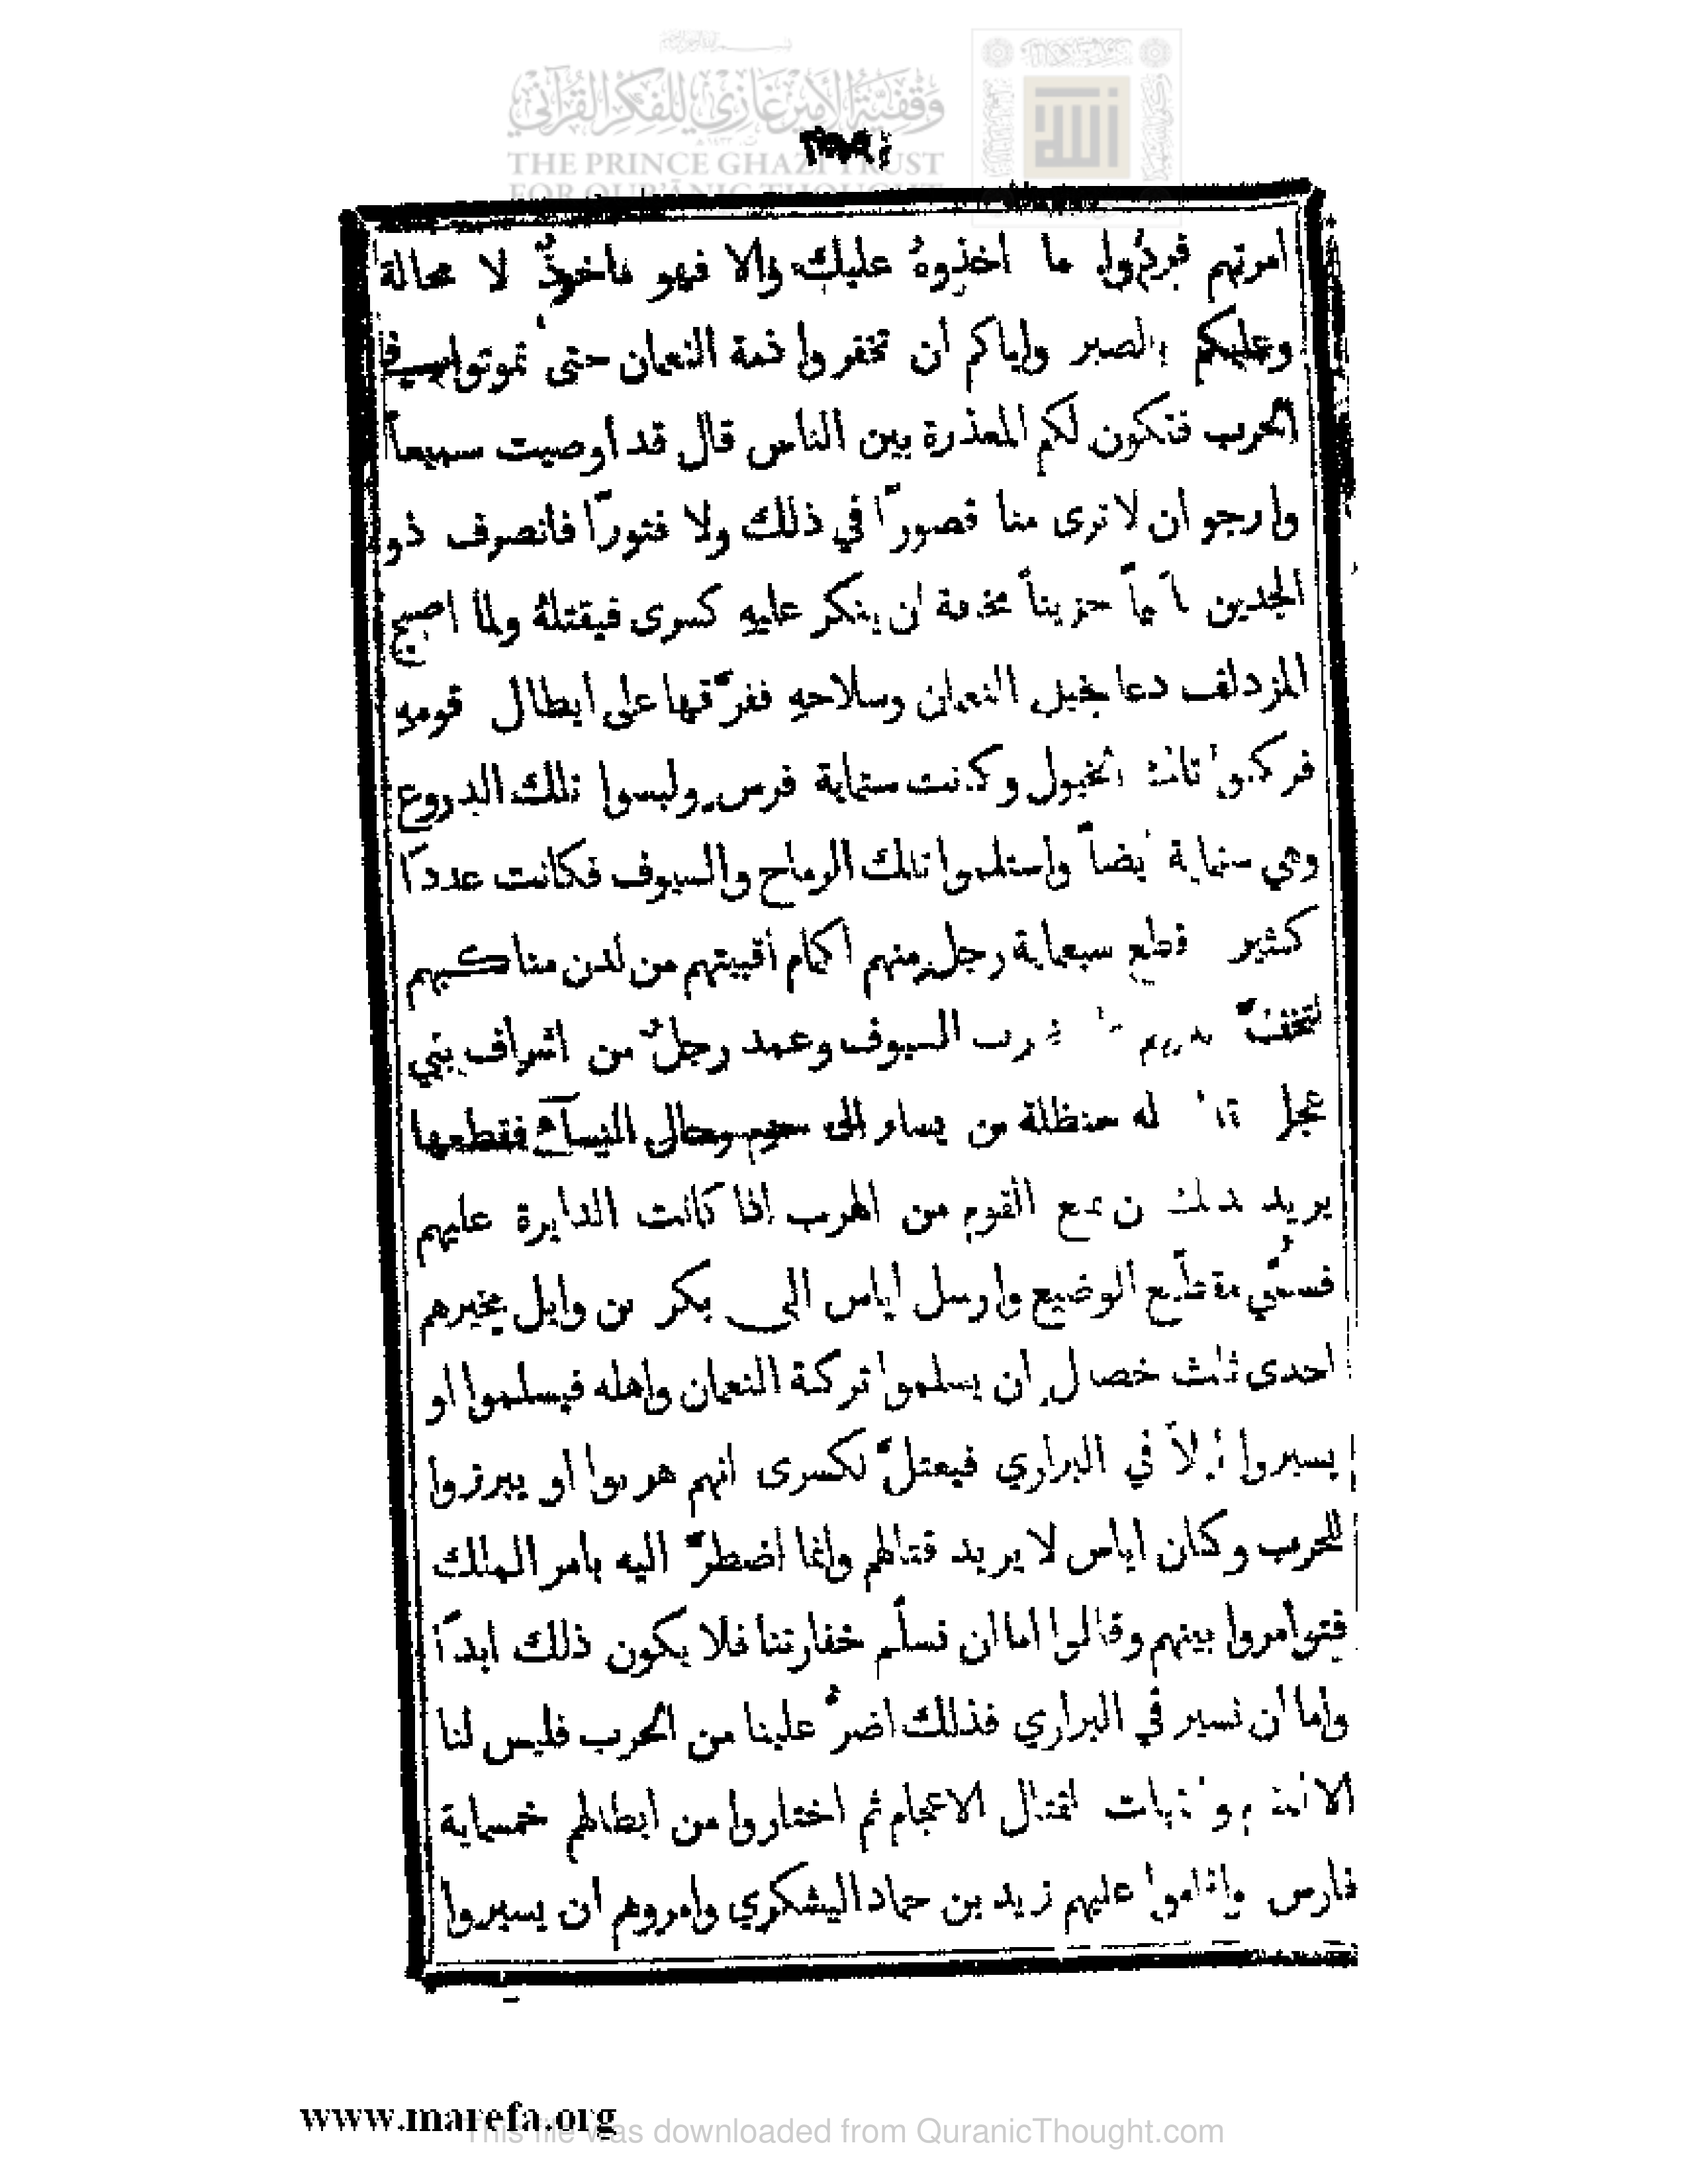 وقفية الأمير غازي للفكر القرآني
THE PRINCE GHAZI TRUST
FOR QUR'ĀNIC THOUGHT
امرتهم فردوا ما اخذوهُ عليك والا فهو ماخوذٌ لا محالة
وعليكم بالصبر واياكم ان تخفروا ذمة النعمان حتى تموتوا في
الحرب فتكون لكم المعذرة بين الناس قال قد أوصيت سميعاً
وارجو ان لا ترى منا قصوراً في ذلك ولا فتوراً فانصرف ذو
الجدين حزيناً مخافة ان ينكر عليهِ كسرى فيقتلهُ ولما اصبح
المزدلف دعا بخيل النعمان وسلاحهِ ففرّقها على ابطال قومهِ
فركبوا تلك الخيول وكانت ستماية فرس ولبسوا تلك الدروع
وهي ستماية ايضاً واستلموا تلك الرماح والسيوف فكانت عدداً
كثير قطع سبعماية رجل منهم اكمام أقبيتهم من لدن مناكبهم
لتخفّ السيوف وعمد رجلٌ من اشراف بني
عجل له حنظلة بن يسار الى حزم رحال النسآء فقطعها
يريد القوم من الهرب اذا كانت الدايرة عليهم
فسمّي مقطّع الوضيع وارسل اياس الى بكر بن وايل يخيرهم
احدى ثلث خصال ان يسلموا تركة النعمان واهله فيسلموا او
يسيروا ليلاً في البراري فيعتلّ لكسرى انهم هربوا او يبرزوا
للحرب وكان اياس لا يريد قتالهم وانما اضطرّ اليه بامر الملك
فتوامروا بينهم وقالوا اما ان نسلّم خفارتنا فلا يكون ذلك ابداً
واما ان نسير في البراري فذلك اضرُّ علينا من الحرب فليس لنا
الا لقتال الاعجام ثم اختاروا من ابطالهم خمسماية
فارس واقاموا عليهم زيد بن حماد اليشكري وامروهم ان يسيروا
www.marefa.org
This file was downloaded from QuranicThought.com